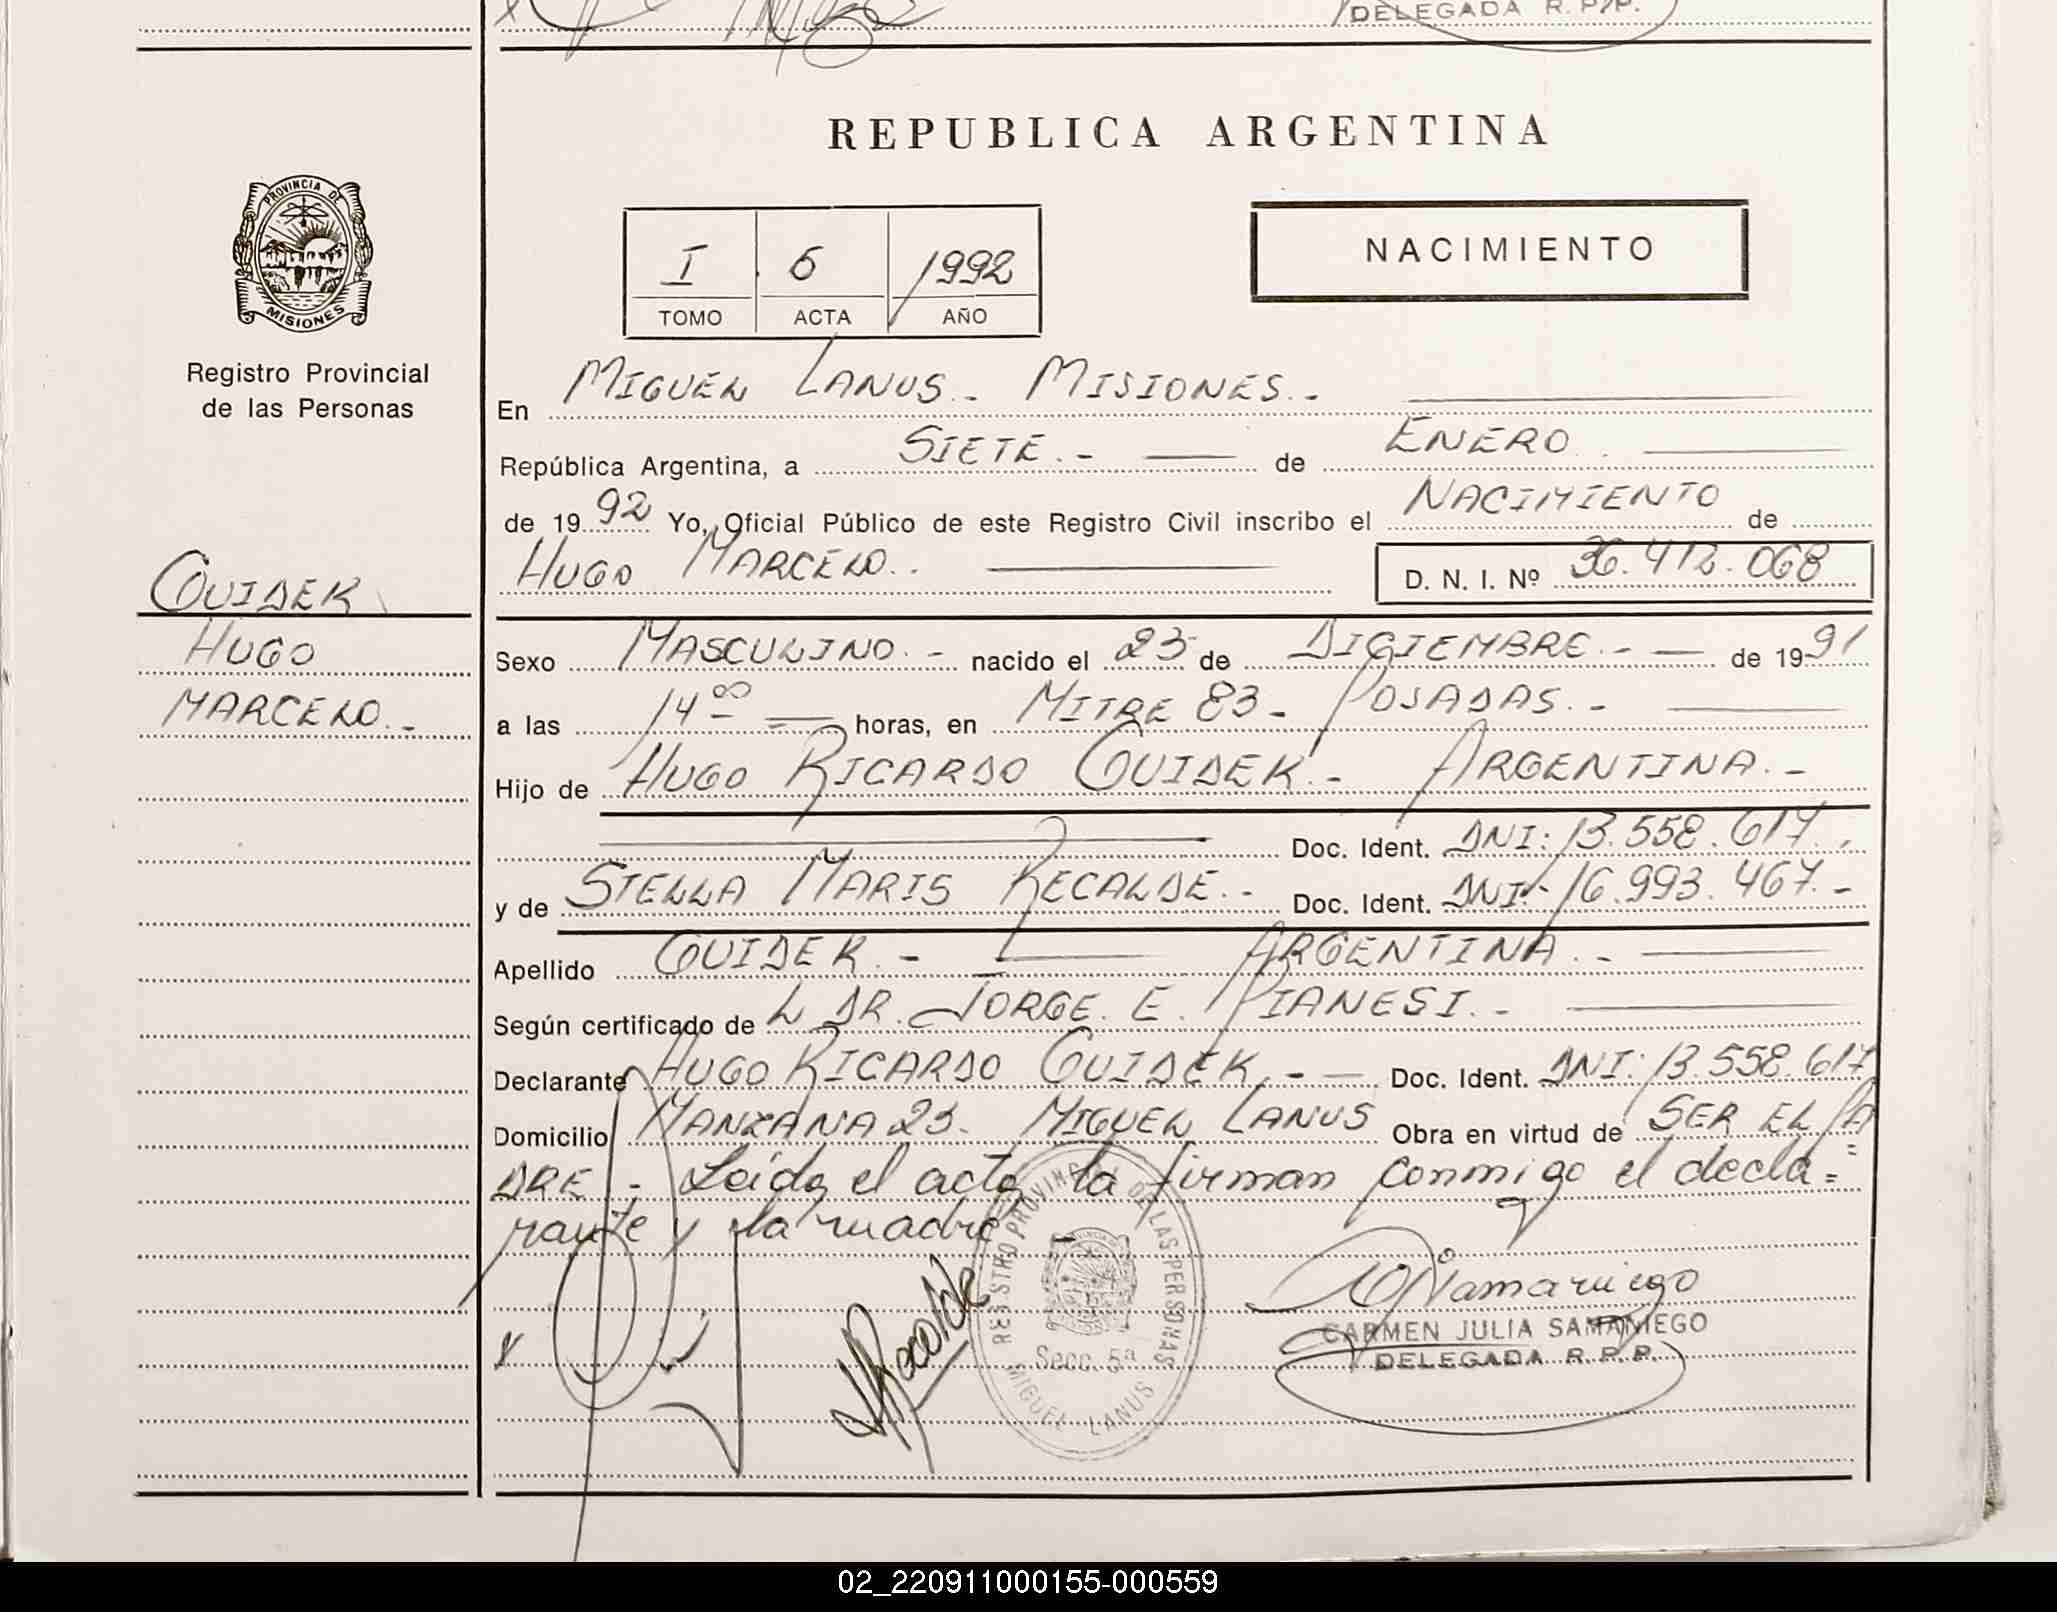 DELEGADA R. P. P.
REPUBLICA ARGENTINA
PROVINCIA DE
MISIONES
Registro Provincial
de las Personas
I 6 1992
TOMO ACTA AÑO
NACIMIENTO
En MIGUEL LANUS.- MISIONES.-
República Argentina, a SIETE.- de ENERO
de 19 92 Yo, Oficial Público de este Registro Civil inscribo el NACIMIENTO de
HUGO MARCELO.. D. N. I. Nº 36.412.068
GUIDEK
HUGO
MARCELO.-
Sexo MASCULINO.- nacido el 23 de DICIEMBRE.- de 19 91
a las 14 00 horas, en MITRE 83- POSADAS.-
Hijo de HUGO RICARDO GUIDEK.- ARGENTINA.-
Doc. Ident. DNI: 13.558.617.
y de STELLA MARIS RECALDE.- Doc. Ident. DNI- 16.993.467.-
Apellido GUIDEK.- ARGENTINA.-
Según certificado de L DR. JORGE. E. PIANESI.-
Declarante HUGO RICARDO GUIDEK.- Doc. Ident. DNI: 13.558.617
Domicilio MANZANA 23. MIGUEL LANUS Obra en virtud de SER EL PA
DRE - Leida el acta la firman conmigo el decla=
rante y la madre -
REGISTRO PROVINCIAL DE LAS PERSONAS
Secc. 5ª
MIGUEL LANUS
x
SRecalde
Samaniego
CARMEN JULIA SAMANIEGO
DELEGADA R. P. P.
02_220911000155-000559